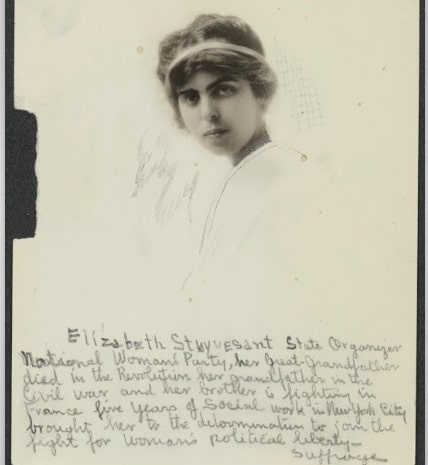 Elizabeth Stuyvesant State Organizer
National Woman's Party, her Great-Grandfather
died in the Revolution her grandfather in the
Civil war and her brother is fighting in
france five years of Social work in New York City
brought her to the determination to join the
fight for Woman's political liberty—
Suffrage